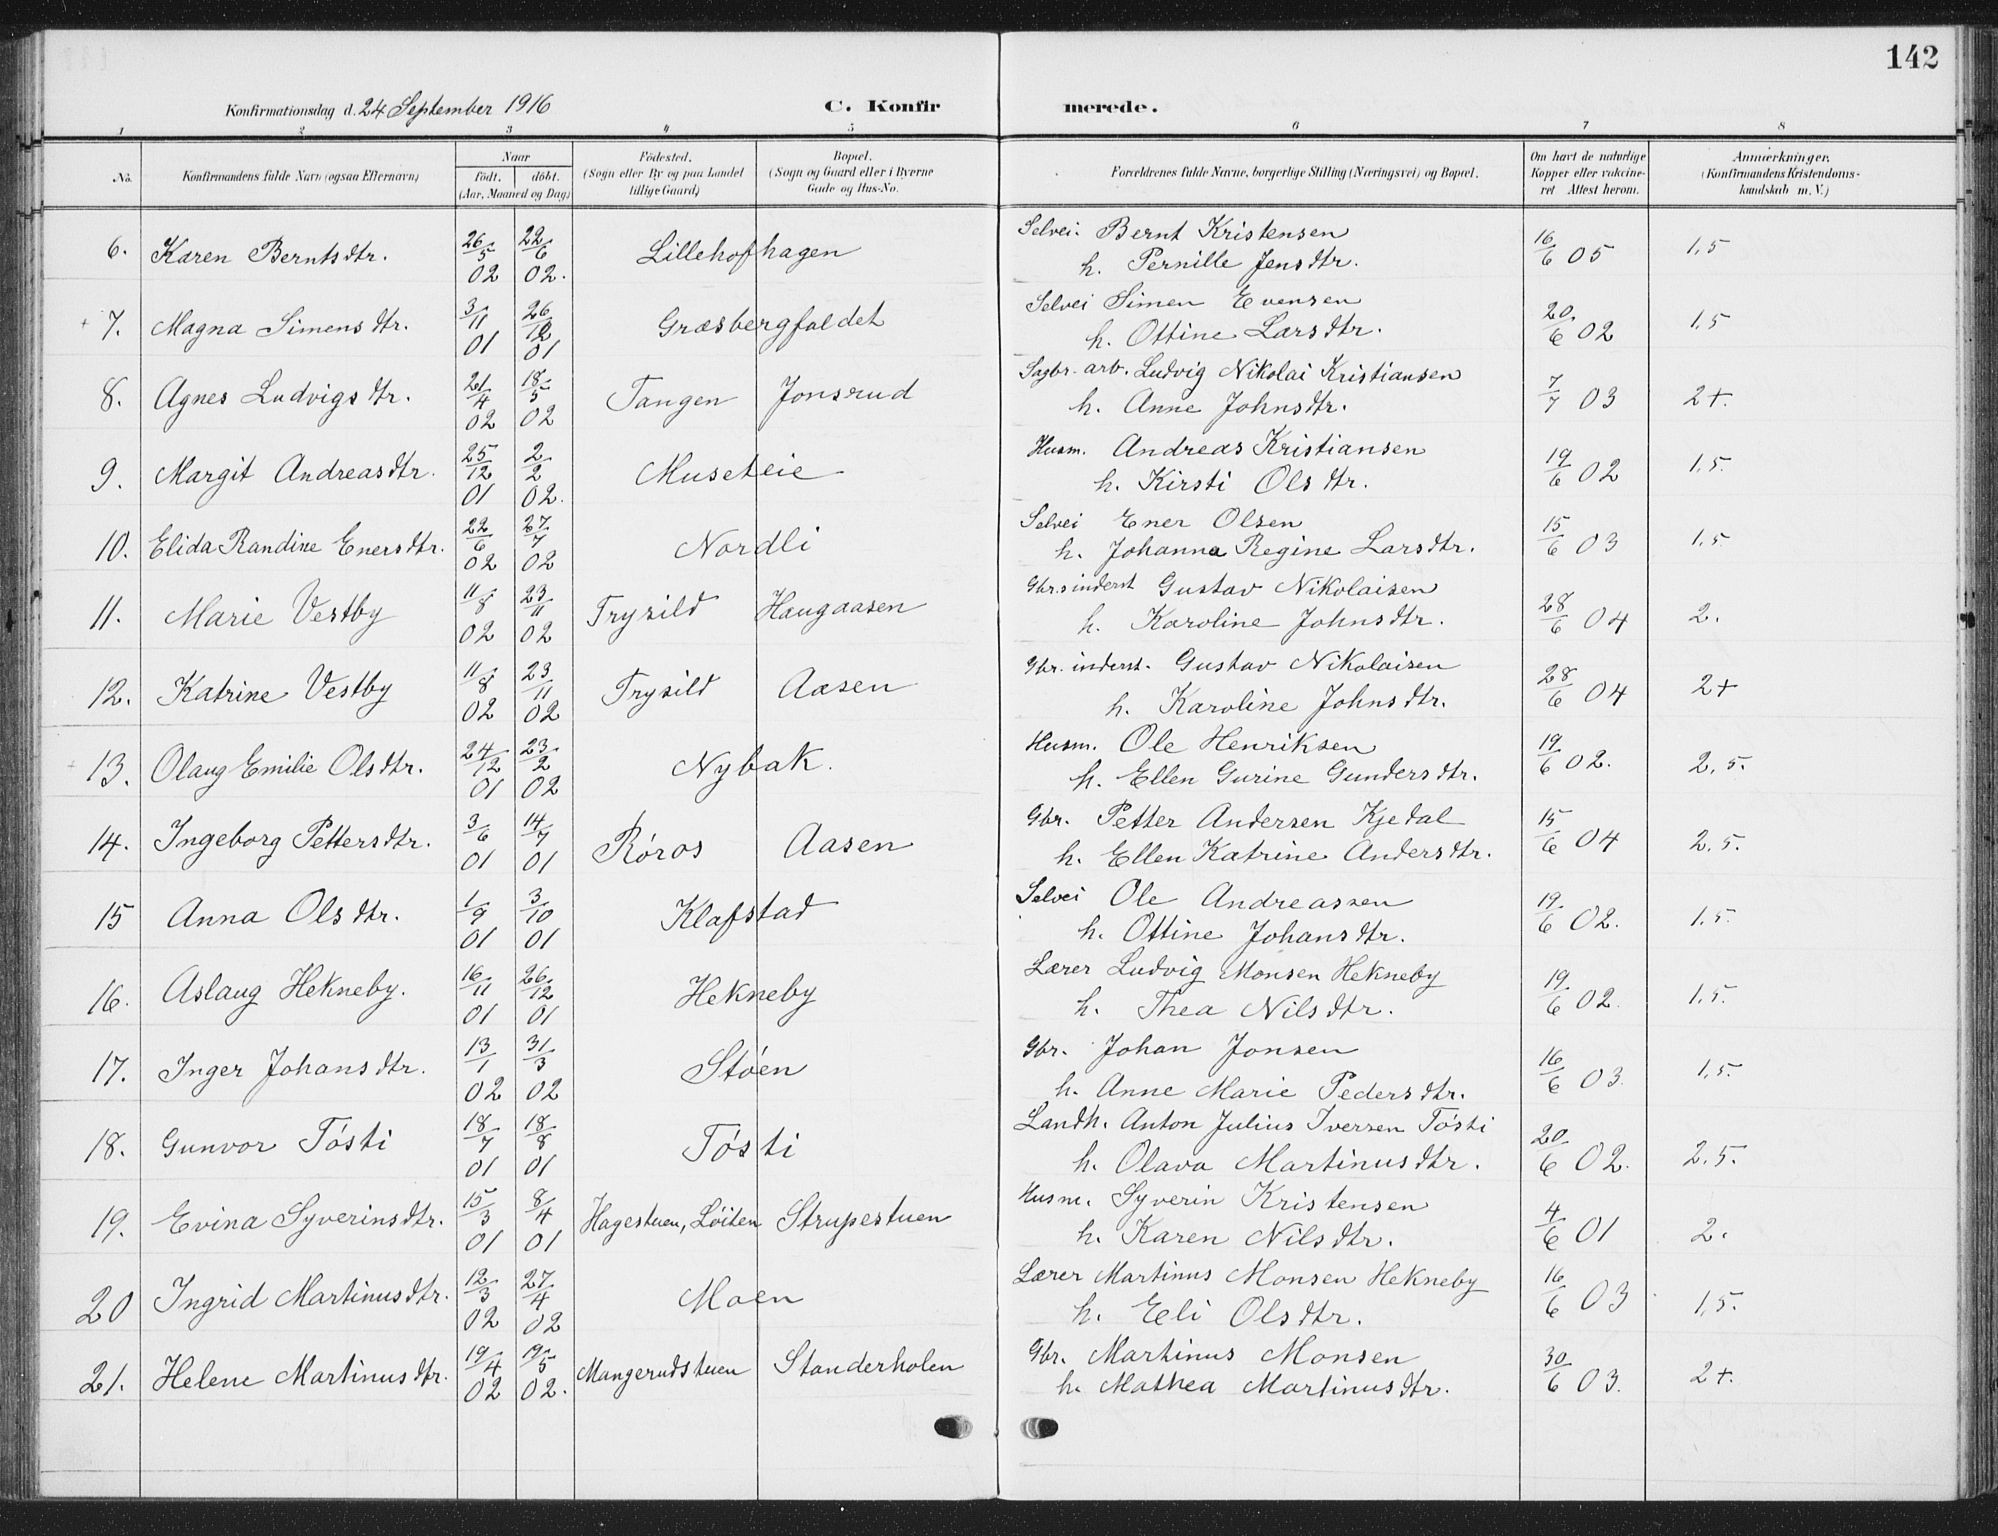 142
Konfirmationsdag d. 24 September 1916 C. Konfir merede.
1 2 3 4 5 6 7 8
No. Konfirmandens fulde Navn (ogsaa Efternavn) Naar födt. döbt. (Aar, Maaned og Dag) Födested. (Sogn eller By og paa Landet tillige Gaard) Bopæl. (Sogn og Gaard eller i Byerne Gade og Hus-No. Forældrenes fulde Navne, borgerlige Stilling (Næringsvei) og Bopæl. Om havt de naturlige Kopper eller vakcineret Attest herom. Anmærkninger. (Konfirmandens Kristendomskundskab m. V.)
6. Karen Berntsdtr. 26/5 02 22/6 02. Lillehofhagen Selvei. Bernt Kristensen 16/6 05 1,5
h. Pernille Jensdtr.
+ 7. Magna Simensdtr. 3/11 01 26/12 01 Græsbergfaldet Selvei Simen Evensen 20/6 02 1,5
h. Ottine Larsdtr.
8. Agnes Ludvigsdtr. 21/4 02 18/5 02 Tangen Jonsrud Sagbr. arb. Ludvig Nikolai Kristiansen 7/7 03 2+.
h. Anne Johnsdtr.
9. Margit Andreasdtr. 25/12 01 2/2 02. Museteie Husm. Andreas Kristiansen 19/6 02 1,5.
h. Kirsti Olsdtr.
10. Elida Randine Enersdtr. 22/6 02 27/7 02 Nordli Selvei Ener Olsen 15/6 03 1,5
h. Johanna Regine Larsdtr.
11. Marie Vestby 11/8 02 23/11 02 Trysild Haugaasen Gbr.s inderst Gustav Nikolaisen 28/6 04 2.
h. Karoline Johnsdtr.
12. Katrine Vestby 11/8 02 23/11 02 Trysild Aasen Gbr. inderst. Gustav Nikolaisen 28/6 04 2+
h. Karoline Johnsdtr.
+ 13. Olaug Emilie Olsdtr. 24/12 01 23/2 02 Nybak. Husm. Ole Henriksen 19/6 02. 2,5.
h. Ellen Gurine Gundersdtr.
14. Ingeborg Pettersdtr. 3/6 01 14/7 01 Røros Aasen Gbr. Petter Andersen Kjedal 15/6 04 2,5.
h. Ellen Katrine Andersdtr.
15 Anna Olsdtr. 1/9 01 3/10 01 Klafstad Selvei Ole Andreassen 19/6 02. 1,5.
h. Ottine Johansdtr.
16. Aslaug Hekneby. 16/11 01 26/12 01 Hekneby Lærer Ludvig Monsen Hekneby 19/6 02. 1,5.
h. Thea Nilsdtr.
17. Inger Johansdtr. 13/1 02 31/3 02 Støen Gbr. Johan Jonsen 16/6 03. 1,5.
h. Anne Marie Pedersdtr.
18. Gunvor Tøsti 18/7 01 18/8 01 Tøsti Landh. Anton Julius Iversen Tøsti 20/6 02. 2,5.
h. Olava Martinusdtr.
19. Evina Syverinsdtr. 15/3 01 8/4 01 Hagestuen, Løiten Strupestuen Husm. Syverin Kristensen 4/6 01 2.
h. Karen Nilsdtr.
20 Ingrid Martinusdtr. 12/3 02 27/4 02 Moen Lærer Martinus Monsen Hekneby 16/6 03 1,5.
h. Eli Olsdtr.
21. Helene Martinusdtr. 19/4 02 19/5 02. Mangerudstuen Standerholen Gbr. Martinus Monsen 30/6 03. 2+.
h. Mathea Martinusdtr.